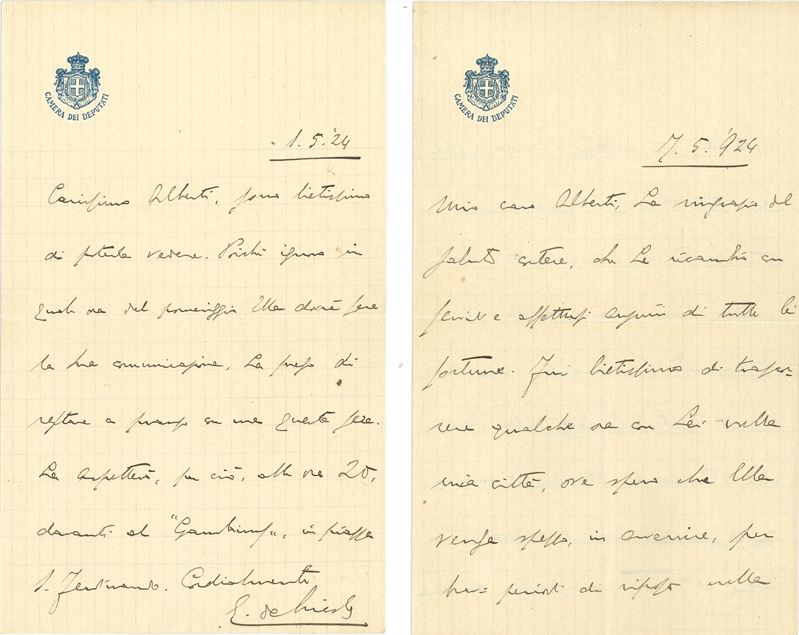 CAMERA DEI DEPUTATI
1.5.'24
Carissimo Alberti, sono lietissimo
di poterla vedere. Poichè ignoro in
quale ora del pomeriggio Ella dovrà fare
la sua comunicazione, La prego di
restare a pranzo con me questa sera.
La aspetterò, per ciò, alle ore 20,
davanti al "Gambrinus", in piazza
S. Ferdinando. Cordialmente
E. de Nicola
CAMERA DEI DEPUTATI
7.5.'924
Mio caro Alberti, La ringrazio del
saluto cortese, che Le ricambio con
fervidi e affettuosi auguri di tutte le
fortune. Fui lietissimo di trascor-
rere qualche ora con Lei nella
mia città, ove spero che Ella
venga spesso, in avvenire, per
brevi periodi di riposo nella